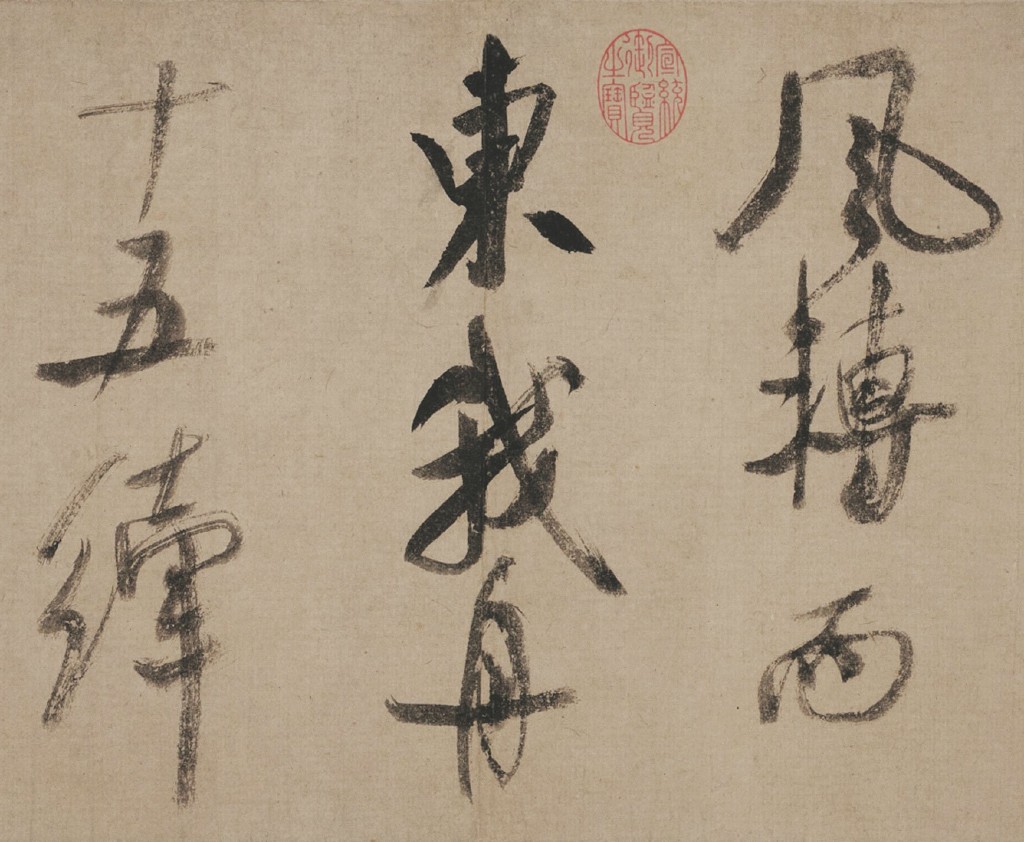 風轉而
東我舟
十五縴
宣統御覽之寶